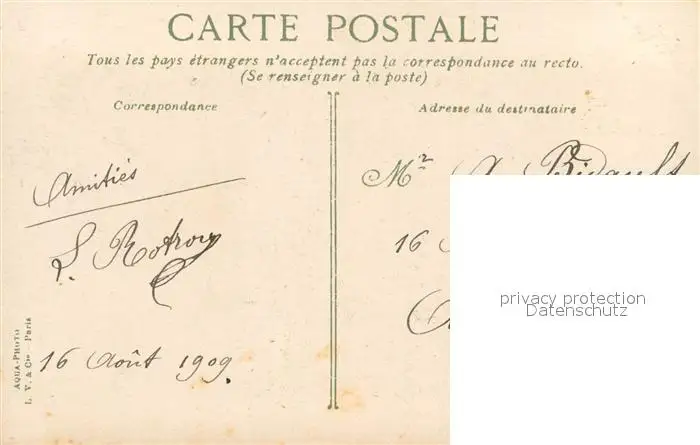 CARTE POSTALE
Tous les pays étrangers n'acceptent pas la correspondance au recto.
(Se renseigner à la poste)
Correspondance
Adresse du destinataire
Amitiés
16 Août 1909.
AQUA-PHOTO
L. V. & Cie – Paris
Mr A. Bidault
16
privacy protection
Datenschutz